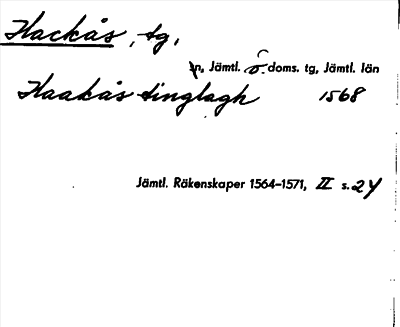 Hackås, tg,
sn, Jämtl. ö. doms. tg, Jämtl. län
Haakås tinglagh 1568
Jämtl. Räkenskaper 1564-1571, II s. 24